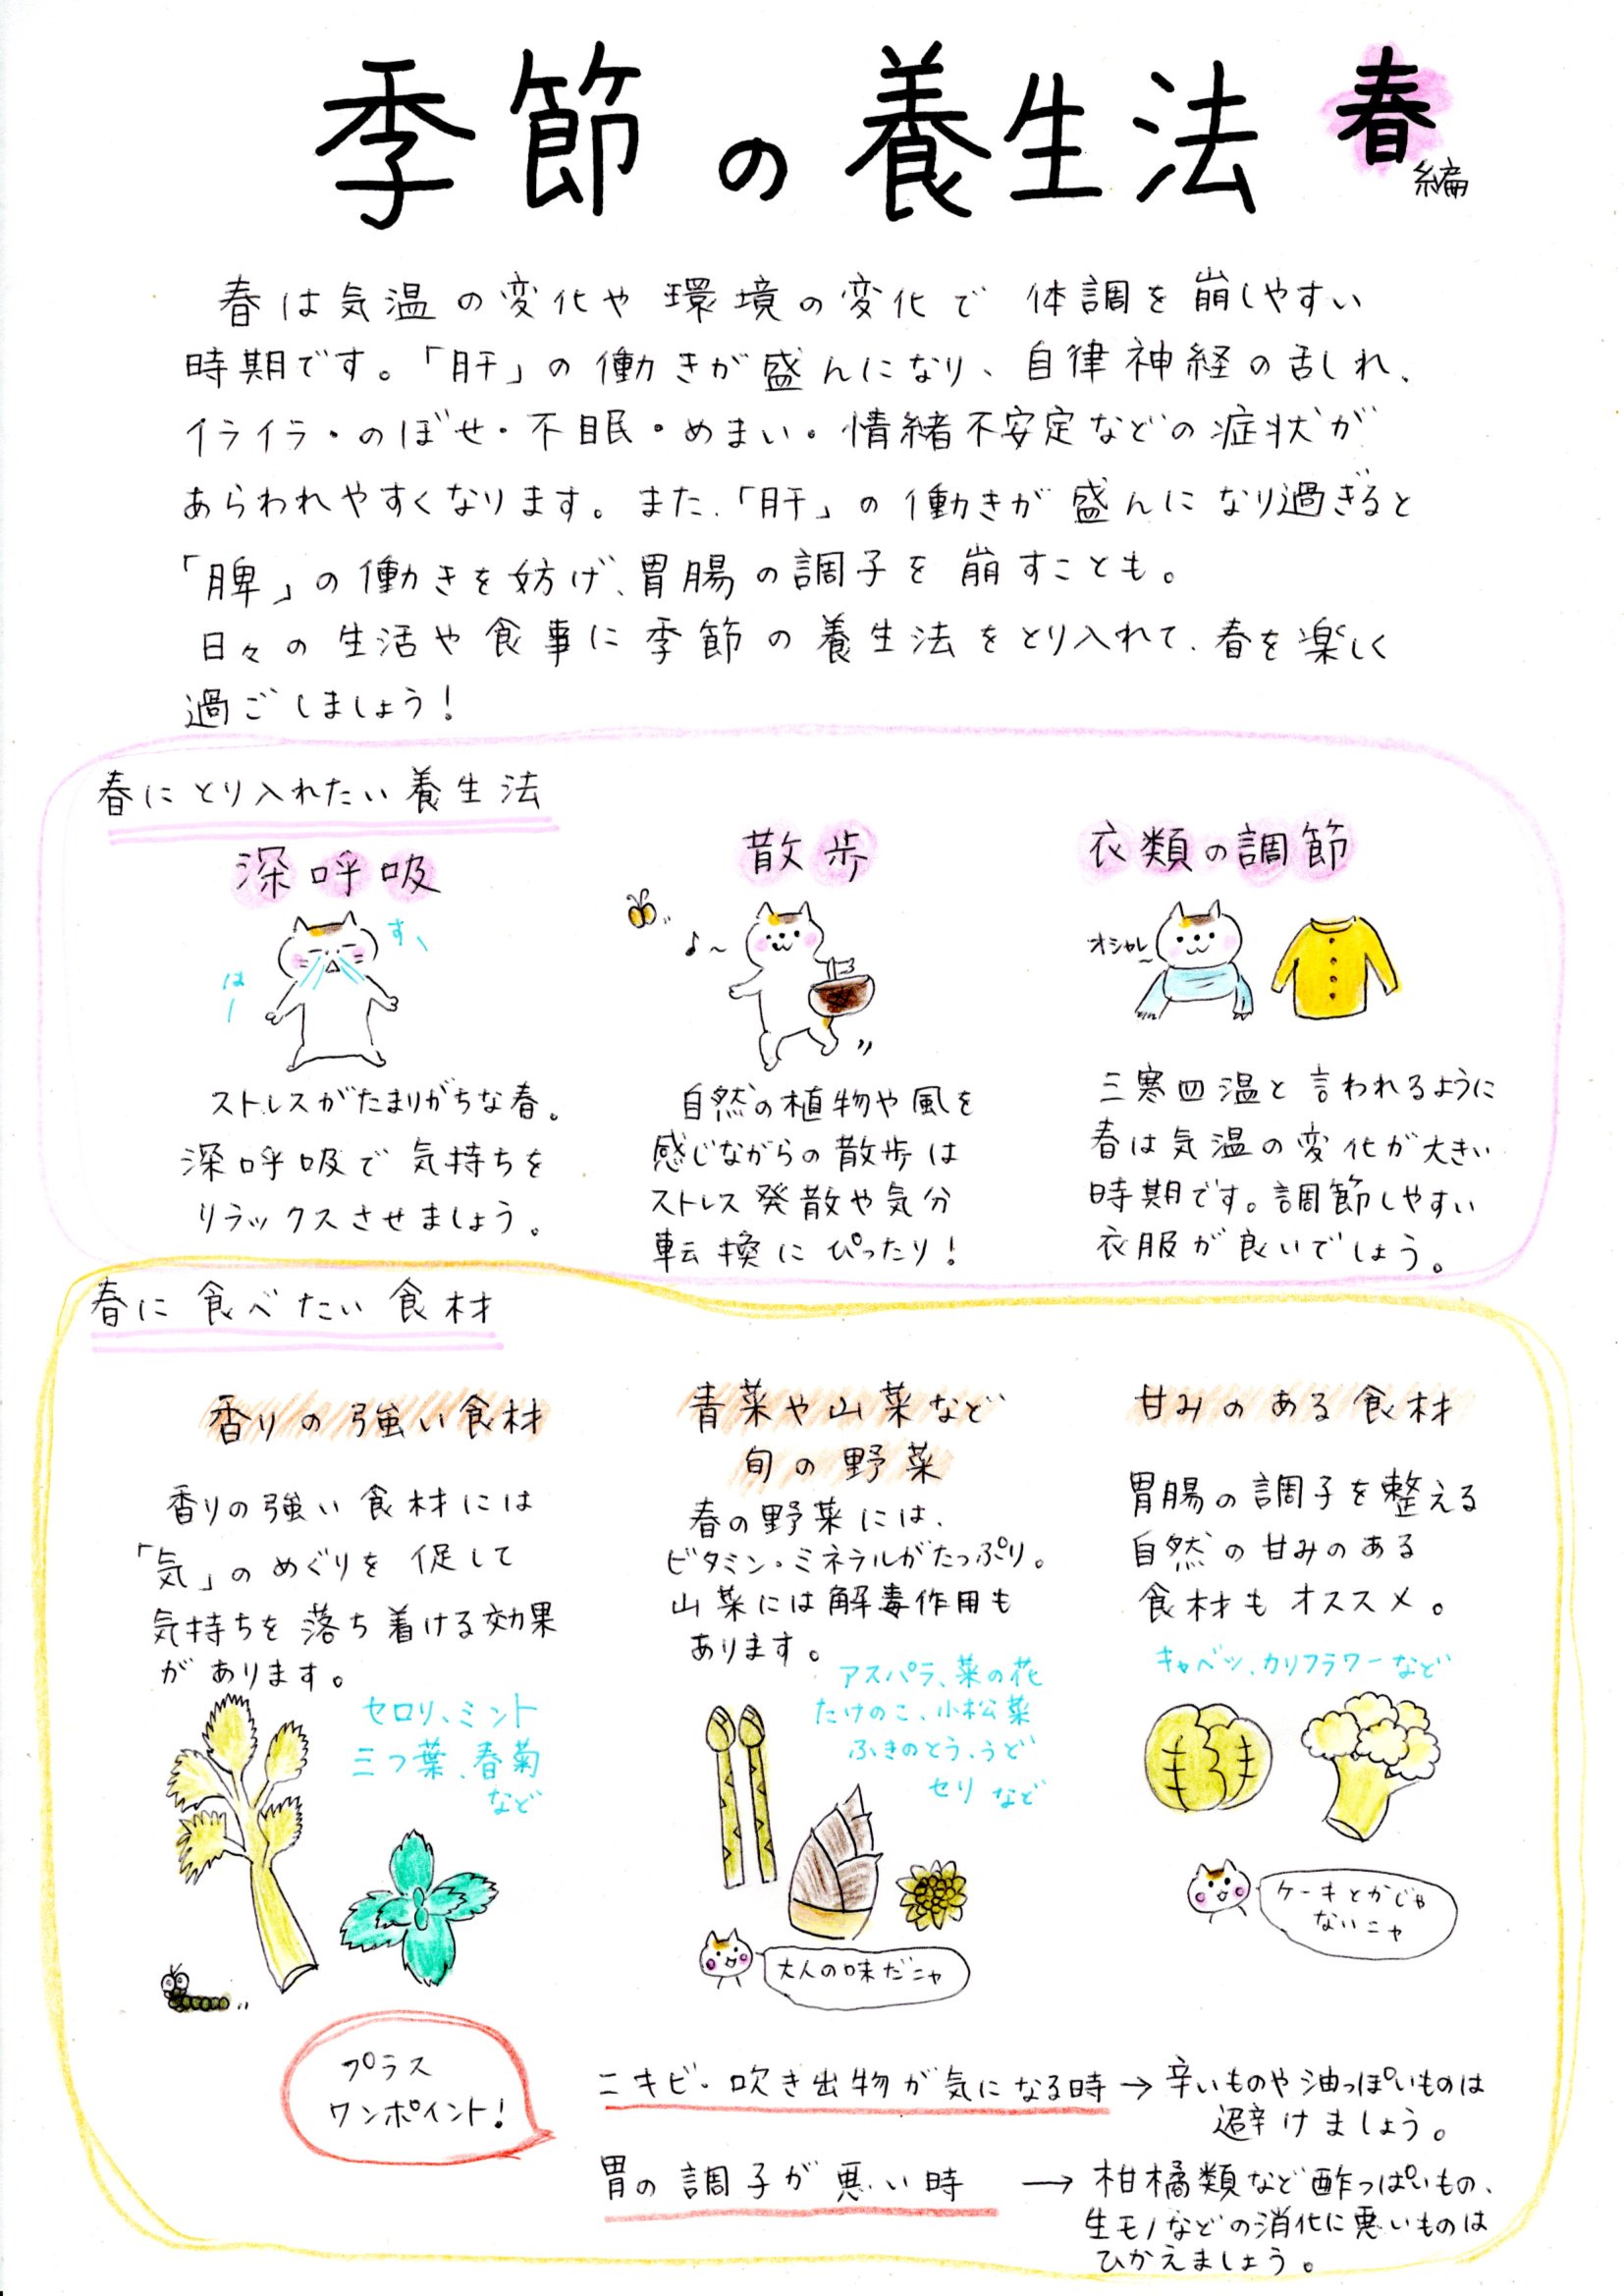 季節の養生法 春編
春は気温の変化や環境の変化で体調を崩しやすい
時期です。「肝」の働きが盛んになり、自律神経の乱れ、
イライラ・のぼせ・不眠・めまい・情緒不安定などの症状が
あらわれやすくなります。また、「肝」の働きが盛んになり過ぎると
「脾」の働きを妨げ、胃腸の調子を崩すことも。
日々の生活や食事に季節の養生法をとり入れて、春を楽しく
過ごしましょう!
春にとり入れたい養生法
深呼吸
すー
はー
ストレスがたまりがちな春。
深呼吸で気持ちを
リラックスさせましょう。
散歩
♪~
自然の植物や風を
感じながらの散歩は
ストレス発散や気分
転換にぴったり!
衣類の調節
オシャレ
三寒四温と言われるように
春は気温の変化が大きい
時期です。調節しやすい
衣服が良いでしょう。
春に食べたい食材
香りの強い食材
香りの強い食材には
「気」のめぐりを促して
気持ちを落ち着ける効果
があります。
セロリ、ミント
三つ葉、春菊
など
青菜や山菜など
旬の野菜
春の野菜には、
ビタミン・ミネラルがたっぷり。
山菜には解毒作用も
あります。
アスパラ、菜の花
たけのこ、小松菜
ふきのとう、うど
セリなど
大人の味だニャ
甘みのある食材
胃腸の調子を整える
自然の甘みのある
食材もオススメ。
キャベツ、カリフラワーなど
ケーキとかじゃ
ないニャ
プラス
ワンポイント!
ニキビ・吹き出物が気になる時→辛いものや油っぽいものは
避けましょう。
胃の調子が悪い時→柑橘類など酢っぱいもの、
生モノなどの消化に悪いものは
ひかえましょう。